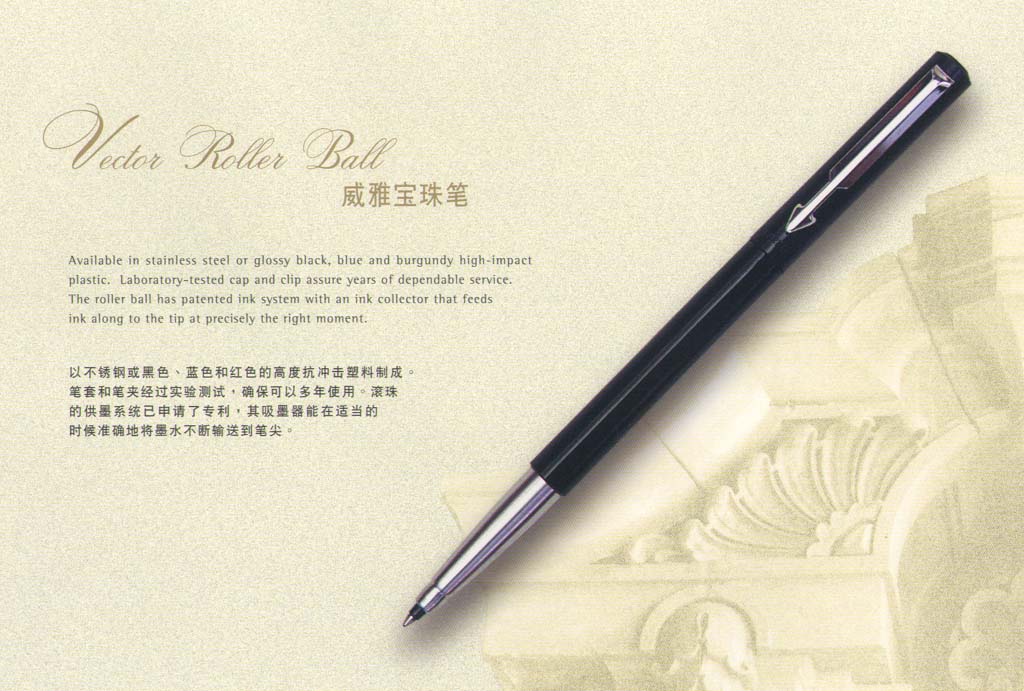 Vector Roller Ball
威雅宝珠笔
Available in stainless steel or glossy black, blue and burgundy high-impact
plastic. Laboratory-tested cap and clip assure years of dependable service.
The roller ball has patented ink system with an ink collector that feeds
ink along to the tip at precisely the right moment.
以不锈钢或黑色、蓝色和红色的高度抗冲击塑料制成。
笔套和笔夹经过实验测试，确保可以多年使用。滚珠
的供墨系统已申请了专利，其吸墨器能在适当的
时候准确地将墨水不断输送到笔尖。